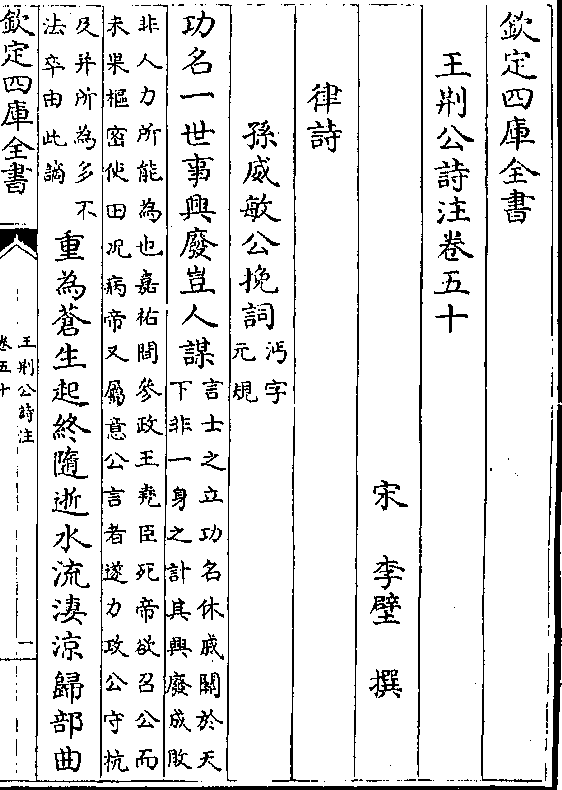 欽定四庫全書
王荆公詩注卷五十
宋 李壁 撰
律詩
孫威敏公挽詞沔字元規
功名一世事興廢豈人謀言士之立功名休戚關於天下非一身之計其興廢成敗
非人力所能為也嘉祐間參政王堯臣死帝欲召公而未果樞密使田况病帝又屬意公言者遂力攻公守杭
及并所為多不法卒由此謫重為蒼生起終隨逝水流淒涼歸部曲
欽定四庫全書
王荆公詩注
卷五十
一